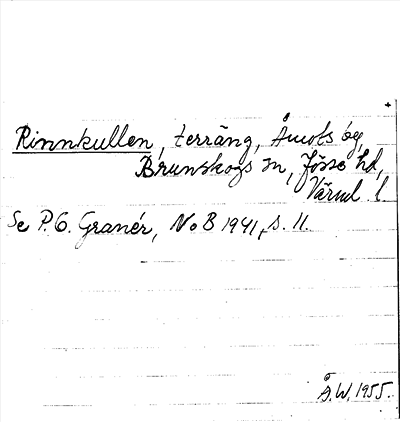 Rinnkullen, terräng, Åmots äg,
Brunskogs sn, Jösse hd,
Värml. l.
Se P. G. Granér, NoB 1941, s. 11.
Å.W. 1955.